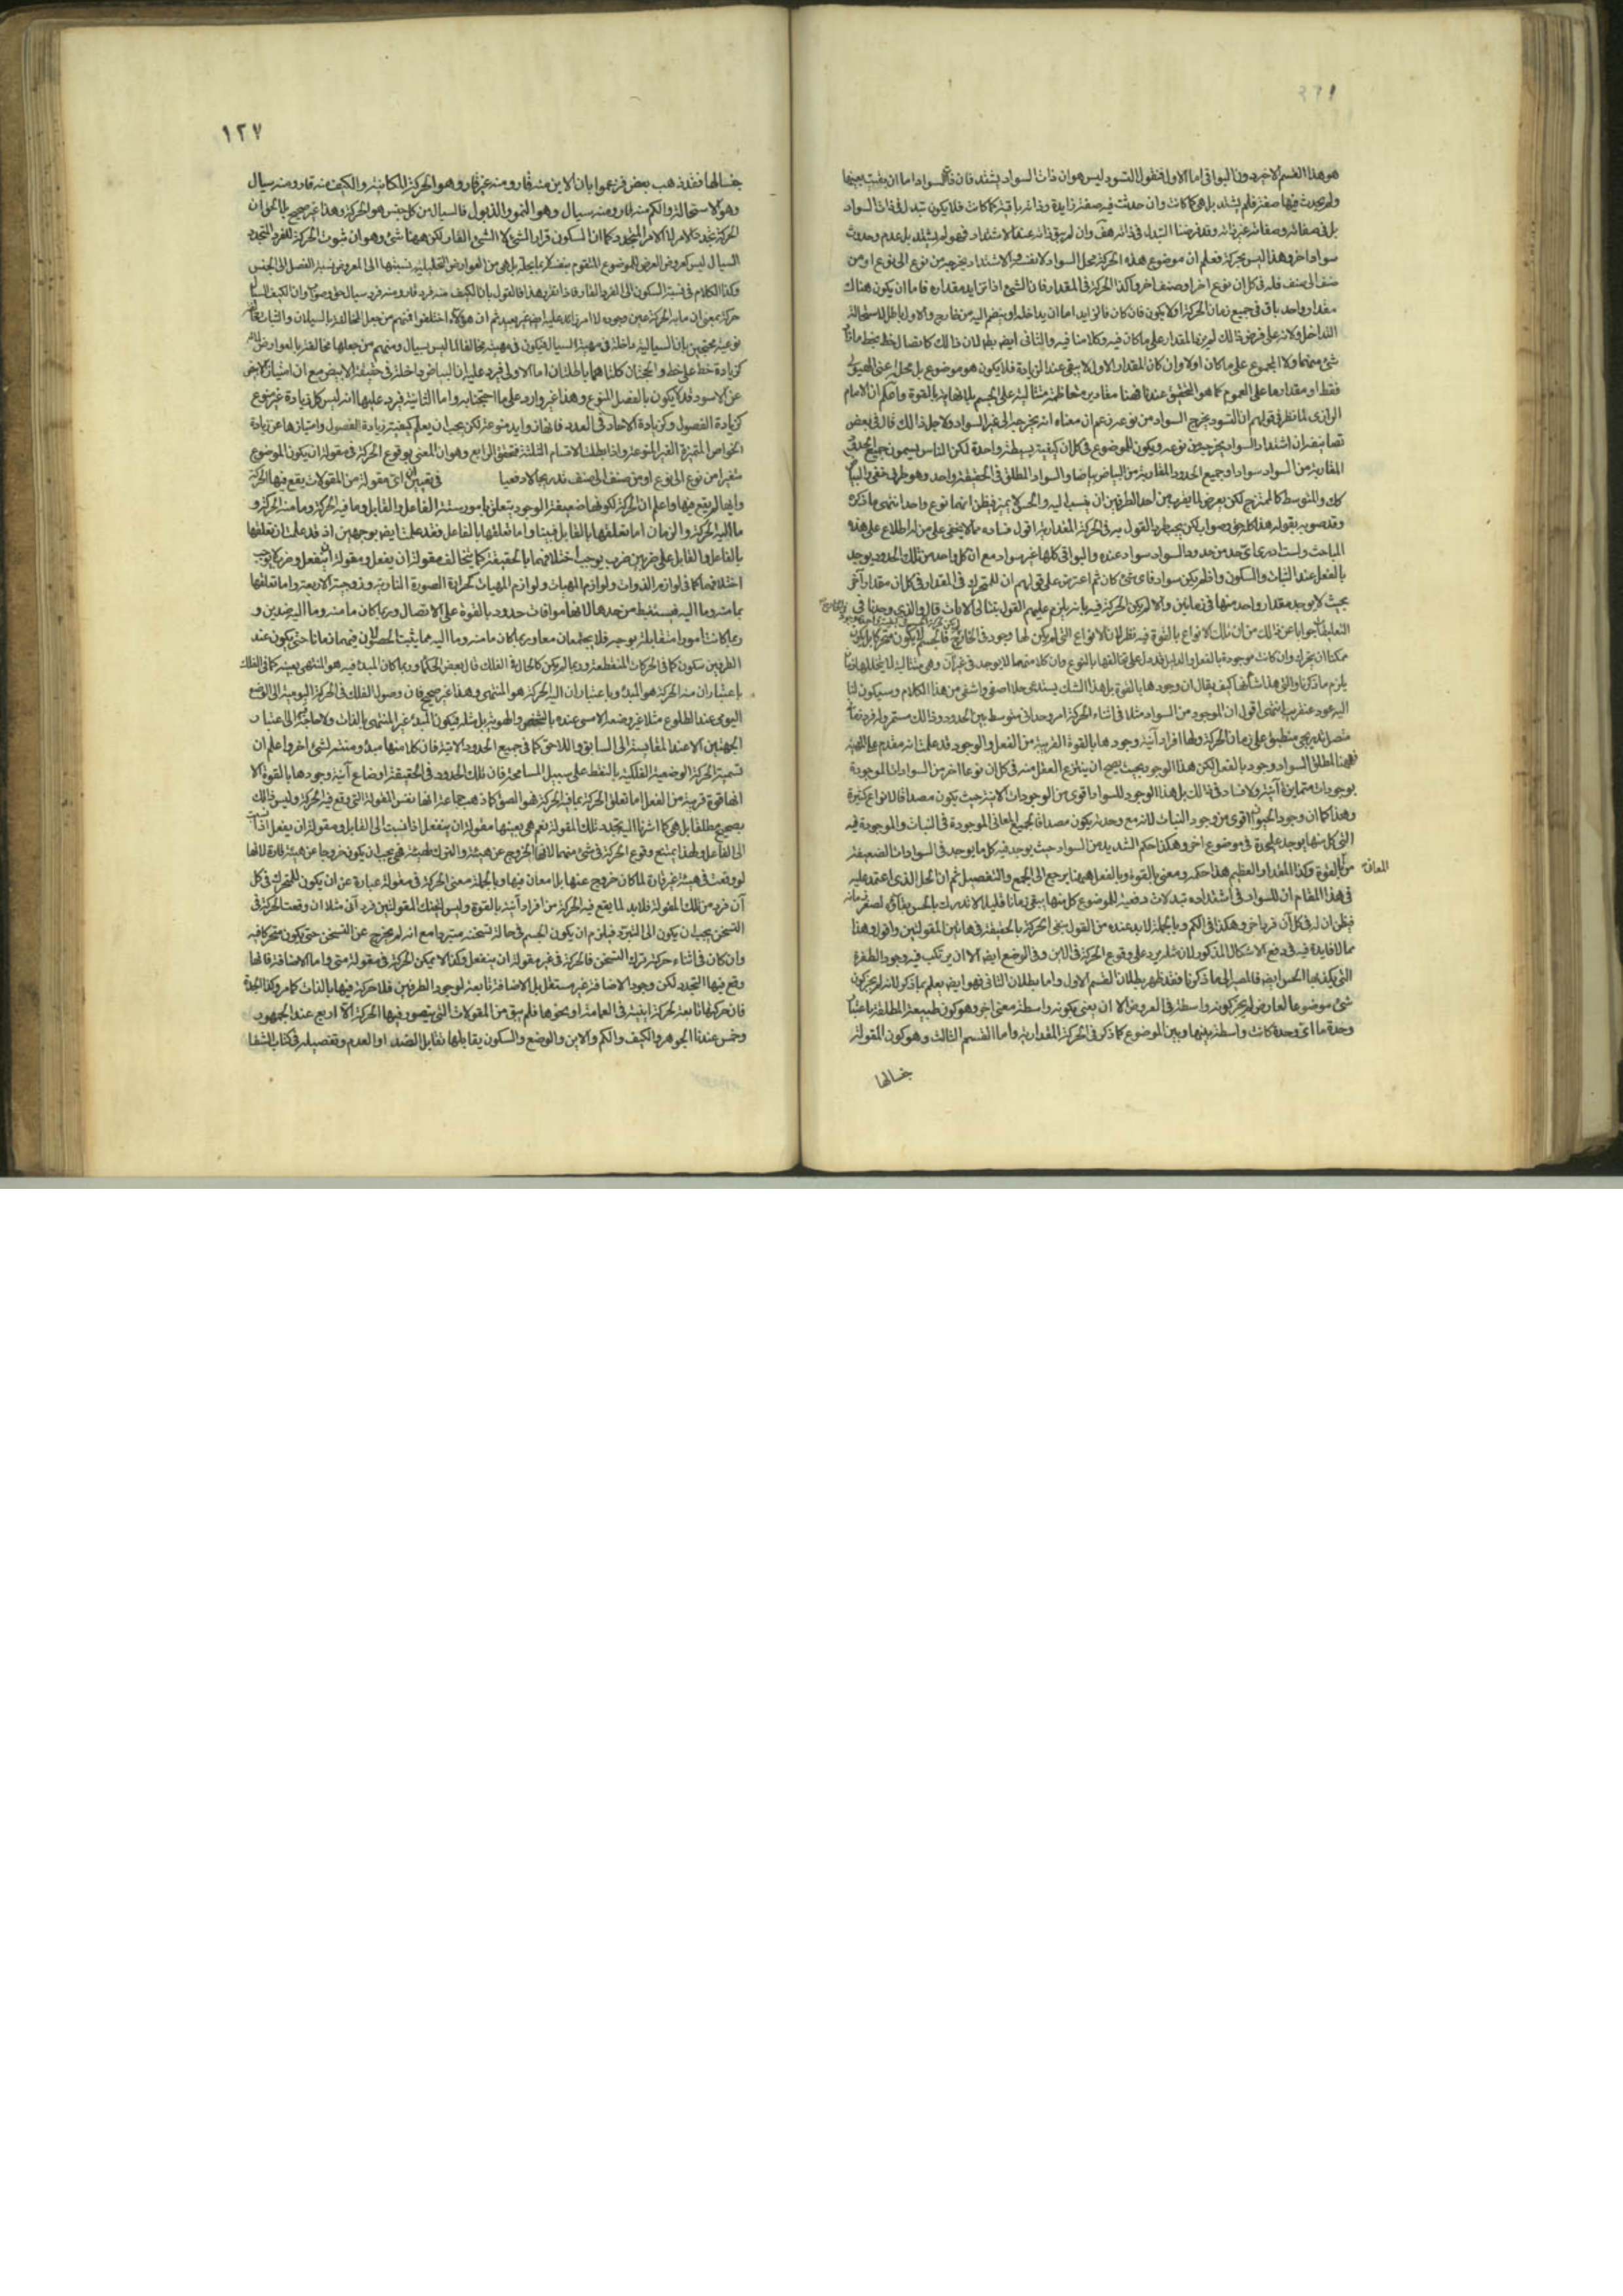 هو هذا القسم الاخير دون البواقى اما الاول فنقول التسود ليس هو ان ذات السواد يشتد فان ذات السواد اما ان بقيت بعينها
ولم يحدث فيها صفة فلم يشتد بل هى كما كانت وان حدثت فيه صفة زايدة وذاته باقية كما كانت فلا يكون تبدل فى ذات السواد
بل فى صفاته وصفاته غير ذاته وقد فرضنا التبدل فى ذاته هف وان لم يبق ذاته عند الاشتداد فهو لم يشتد بل عدم وحدث
سواد اخر وهذا ليس بحركة فعلم ان موضوع هذه الحركة محل السواد لا نفسه والاشتداد يخرجه من نوع الى نوع او من
صنف الى صنف فله فى كل ان نوع اخر او صنف اخر وكذا الحركة فى المقدار فان الشئ اذا تزايد مقداره فاما ان يكون هناك
مقدار واحد باق فى جميع زمان الحركة اولا يكون فان كان فالزايد اما ان يداخله او ينضم اليه من خارج والاول باطل لاستحالة
التداخل ولانه على فرض ذالك لم يزد المقدار على ما كان فيه وكلامنا فيه والثانى ايضا بطلان ذالك كاتصال خط بخط ما زاد
شئ منهما ولا المجموع على ما كان اولا وان كان المقدار الاول لا يبقى عند الزيادة فلا يكون هو موضوع بل محله اعنى الهيولى
فقط او مقدار ما على العموم كما هو التحقيق عندنا فهنا مقادير متعاظمة متتالية على الجسم بلا نهاية بالقوة واعلم ان الامام
الرازى لما نظر فى قولهم ان التسود يخرج السواد من نوعه زعم ان معناه انه يخرجه الى غير السواد ولاجل ذالك قال فى بعض
تصانيفه ان اشتداد السواد يخرجه من نوعه ويكون للموضوع فى كل ان كيفية بسيطة واحدة لكن الناس يسمون جميع الحدود
المقاربة من السواد سوادا وجميع الحدود المقاربة من البياض بياضا والسواد المطلق فى الحقيقة واحد وهو طرف خفى والبياض
كك والمتوسط كالممتزج لكن يعرض لما يقرب من احد الطرفين ان ينسب اليه والحس لا يميز فيظن انهما نوع واحد انتهى ما ذكره
وقد صوبه بقوله هذا كله حق وصواب لكن يجب طرد القول به فى الحركة المقدارية اقول فساده مما لا يخفى على من له اطلاع على هذه
المباحث ولست ادرى اى حد من حدود السواد سواد عنده والبواقى كلها غير سواد مع ان كل واحد من تلك الحدود يوجد
بالفعل عند الثبات والسكون واذا لم يكن سواد فاى شئ كان ثم اعترض على قولهم ان للمتحرك فى المقدار فى كل ان مقدار اخر
بحيث لا يوجد مقدار واحد منها فى زمانين والا لم يكن الحركة فيه بانه يلزم عليهم القول بتتالى الانات قال والذى وجدنا فى
التعليقات جوابا عن ذالك من ان تلك الانواع بالقوة فيه نظر لان الانواع التى لم يكن لها وجود فى الخارج فالجسم لا يكون متحركا بل يكون
ممكنا ان يتحرك وان كانت موجودة بالفعل والدليل قد دل على تخالفها بالنوع وان كلا منهما لا يوجد فى غير ان وهى متتالية لا يتخللها زمان
يلزم ما ذكرنا والتى هذا شأنها كيف يقال ان وجودها بالقوة بل هذا الشك يستدعى حلا اصفى واشفى من هذا الكلام وسيكون لنا
اليه عود عن قريب انتهى اقول ان الموجود من السواد مثلا فى اثناء الحركة امر وحدانى متوسط بين الحدود وذالك مستمر وله فرد زمانى
متصل تدريجى منطبق على زمان الحركة ولها افراد آنية وجودها بالقوة القريبة من الفعل والوجود قد علمت انه متقدم على المهية
فههنا لمطلق السواد وجود بالفعل لكن هذا الوجود بحيث يصح ان ينتزع العقل منه فى كل ان نوعا اخر من السوادات الموجودة
بوجودات متمايزة آنية ولا فساد فى ذالك بل هذا الوجود للسواد اقوى من الوجودات الانية حيث يكون مصداقا لانواع كثيرة
وهذا كما ان وجود الحيوان اقوى من وجود النبات لانه مع وحدته يكون مصداقا لجميع المعانى الموجودة فى النبات والموجودة فيه
التى كل منها يوجد على حدة فى موضوع اخر وهكذا حكم الشديد من السواد حيث يوجد فيه كل ما يوجد فى السوادات الضعيفة
من المعانى بالقوة وكذا المقدار العظيم هذا حكمه ومعنى بالقوة وبالفعل ههنا يرجع الى الجمع والتفصيل ثم ان الحل الذى اعتمد عليه
فى هذا المقام ان للسواد فى اشتداده تبدلات دفعية للموضوع كل منها يبقى زمانا قليلا لا تدرك بالحس بقاؤه لصغر زمانه
فيظن ان له فى كل آن فردا اخر وهكذا فى الكم وبالجملة لا بد عنده من القول بنفى الحركة بالحقيقة فى هاتين المقولتين واقول وهذا
مما لا فايدة فيه فى دفع الاشكال المذكور لان مثله يرد على وقوع الحركة فى الاين وفى الوضع ايضا الا ان يرتكب فيه وجود الطفرة
التى يكذبها الحس ايضا فالمصير الى ما ذكرنا فقد ظهر بطلان القسم الاول واما بطلان الثانى فهو ايضا يعلم بما ذكر لانه لم يجز كون
شئ موضوعا لعارض لم يجز كونه واسطة فى العروض الا ان يعنى بكونه واسطة معنى اخر وهو كون طبيعته المطلقة باعتبار
وحدة ما اى وحدة كانت واسطة بينهما وبين الموضوع كما ذكر فى الحركة المقدارية واما القسم الثالث وهو كون المقولة
جنسا لها
١٢٧
جنسا لها فقد ذهب بعض فزعموا بان الاين منه قار ومنه غير قار وهو الحركة المكانية والكيف منه قار ومنه سيال
وهو الاستحالة والكم منه قار ومنه سيال وهو النمو والذبول فالسيال من كل جنس هو الحركة وهذا غير صحيح بل الحق ان
الحركة تجدد الامر لا الامر المتجدد كما ان السكون قرار الشئ لا الشئ القار لكن ههنا شئ وهو ان ثبوت الحركة للفرد المتجدد
السيال ليس كعروض العرض للموضوع المتقوم بنفسه لا بما يحله بل هى من العوارض التحليلية نسبتها الى المعروض نسبة الفصل الى الجنس
وكذا الكلام فى نسبة السكون الى الفرد القار فاذا تقرر هذا فالقول بان الكيف منه فرد قار ومنه فرد سيال حق وصواب وان الكيف السيال
حركة بمعنى ان ما به الحركة عين وجوده لا امر زائد عليه ايضا غير بعيد ثم ان هؤلاء اختلفوا فمنهم من جعل المخالفة بالسيلان والثبات مخالفة
نوعية محتجين بان السيالية داخلة فى مهية السيال فيكون فى مهيته مخالفا لما ليس بسيال ومنهم من جعلها مخالفة بالعوارض لانه
كزيادة خط على خط والحجتان كلتاهما باطلتان اما الاولى فيرد عليه ان البياض داخلة فى حقيقة الابيض مع ان امتياز الابيض
عن الاسود قد لا يكون بالفصل المنوع وهذا غير وارد على ما احتججنا به واما الثانية فيرد عليها انه ليس كل زيادة غير منوع
كزيادة الفصول وكزيادة الاحاد فى العدد فانها زوايد منوعة لكن يجب ان يعلم كيفية زيادة الفصول وامتيازها عن زيادة
الخواص المميزة الغير المنوعة واذا بطلت الاقسام الثلثة فتحقق الرابع وهو ان المعنى بوقوع الحركة فى مقولة ان يكون الموضوع
متغيرا من نوع الى نوع او من صنف الى صنف تدريجا لا دفعيا فى تعيين ان اى مقولة من المقولات يقع فيها الحركة
وايها لم يقع فيها واعلم ان الحركة لكونها ضعيفة الوجود يتعلق بامور ستة الفاعل والقابل وما فيه الحركة وما منه الحركة و
ما اليه الحركة والزمان اما تعلقها بالقابل فبينا واما تعلقها بالفاعل فقد علمت ايضا بوجهين اذ قد علمت ان تعلقها
بالفاعل والقابل على ضربين ضرب يوجب اختلافهما بالحقيقة كما يتخالف مقولة ان يفعل ومقولة ان ينفعل وضرب لا يوجب
اختلافهما كما فى لوازم الذوات ولوازم المهيات ولوازم المهيات كحرارة الصورة النارية وزوجية الاربعة واما تعلقها
بما منه وما اليه فيستنبط من حدها لانها موافات حدود بالقوة على الاتصال وربما كان ما منه وما اليه ضدين و
ربما كانتا امورا متقابلة بوجه فلا يجتمعان معا وربما كان ما منه وما اليه مما يثبت الحصول فيهما زمانا حتى يكون عند
الطرفين سكون كما فى الحركات المنقطعة وربما لم يكن كالحال فى الفلك قال بعض الحكماء وربما كان المبدء فيه هو المنتهى بعينه كما فى الفلك
باعتبار ان منه الحركة هو المبدء وباعتبار ان اليه الحركة هو المنتهى وهذا غير صحيح فان وصول الفلك فى الحركة اليومية الى الوضع
اليومى عند الطلوع مثلا غير وضعه الامسى عنده بالشخص والهوية بل مثله فيكون المبدء غير المنتهى بالذات ولا حاجة الى اعتبار
الجهتين الا عند المقايسة الى السابق واللاحق كما فى جميع الحدود الانية فان كلا منها مبدء ومنتهى لشئ اخر واعلم ان
تسمية الحركة الوضعية الفلكية بالنقط على سبيل المسامحة فان تلك الحدود فى الحقيقة اوضاع آنية وجودها بالقوة الا
انها قوة قريبة من الفعل اما تعلق الحركة بما فيه الحركة فهو الصق كما ذهب جماعة انها نفس المقولة التى وقع فيه الحركة وليس ذالك
بصحيح مطلقا بل هى كما اشرنا اليه تجدد تلك المقولة نعم هى بعينها مقولة ان ينفعل اذا نسبت الى القابل ومقولة ان يفعل اذا نسبت
الى الفاعل ولهذا يمتنع وقوع الحركة فى شئ منهما لانها الخروج عن هيئة والترك لهيئة فهى يجب ان يكون خروجا عن هيئة قارة لانها
لو وقعت فى هيئة غير قارة لما كان خروج عنها بل امعان فيها وبالجملة معنى الحركة فى مقولة عبارة عن ان يكون للمتحرك فى كل
آن فرد من تلك المقولة فلا بد لما يقع فيه الحركة من افراد آنية بالقوة وليس لتينك المقولتين فرد آنى مثلا ان وقعت الحركة فى
التسخن يجب ان يكون الى التبرد فيلزم ان يكون الجسم فى حالة تسخنه متبردا مع انه لم يخرج عن التسخن حتى يكون متحركا فيه
وان كان فى اثناء حركة ترك التسخن فالحركة فى غير مقولة ان ينفعل وكذا لا يمكن الحركة فى مقولة متى واما الاضافة فانها
وقع فيها التجدد لكن وجود الاضافة غير مستقل بل الاضافة تابعة لوجود الطرفين فلا حركة فيها بالذات كما مر وكذا الجدة
فان حركتها تابعة لحركة اينية فى العمامة او نحوها فلم يبق من المقولات التى يتصور فيها الحركة الا اربع عند الجمهور
وخمس عندنا الجوهر والكيف والكم والاين والوضع والسكون يقابلها تقابل الضد او العدم وتفصيله فى كتاب الشفا